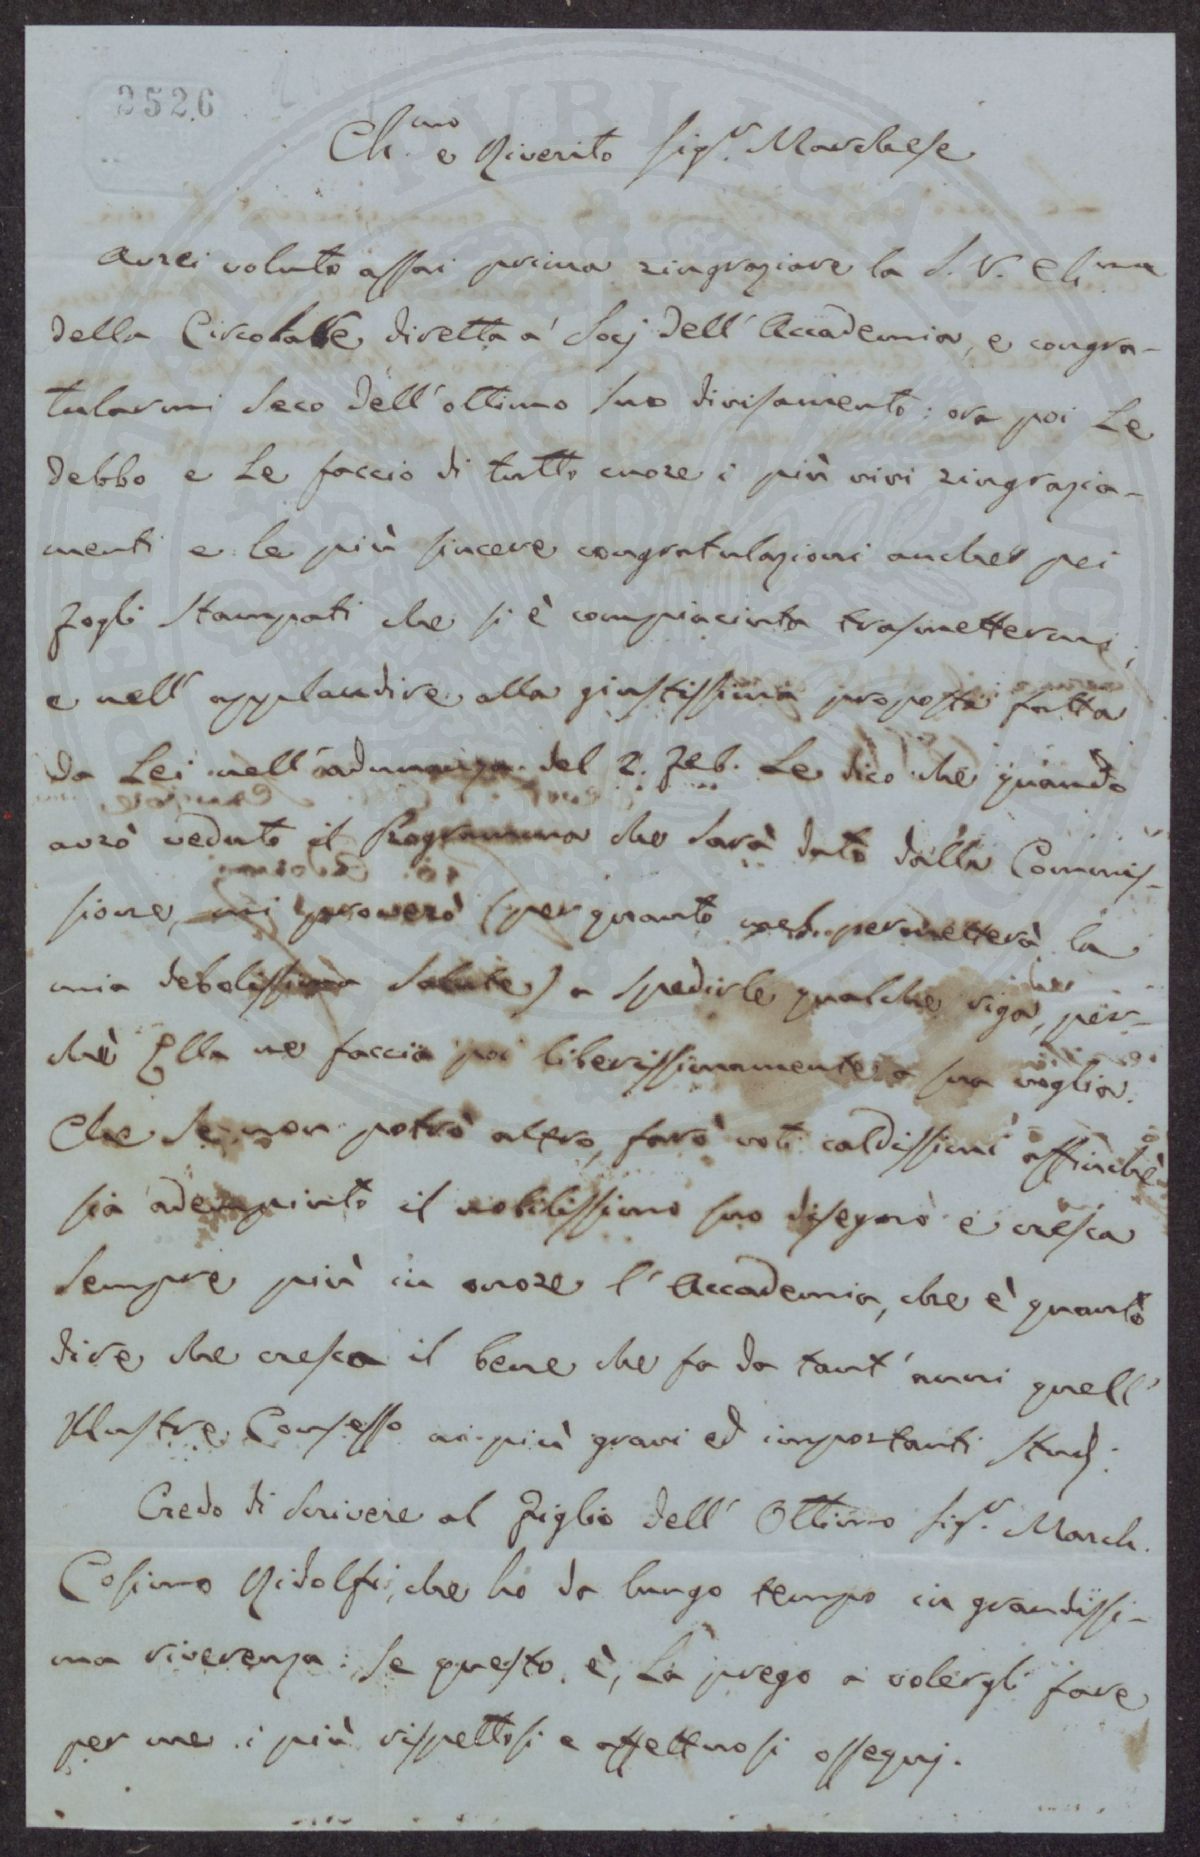 2526
Ch.mo e Riverito Sig.r Marchese
Avrei voluto assai prima ringraziare la S. V. Ch.ma
della Circolare diretta a' Socj dell'Accademia, e congra-
tularmi seco dell'ottimo suo divisamento: ora poi Le
debbo e Le faccio di tutto cuore i più vivi ringrazia-
menti e le più sincere congratulazioni anche pei
fogli stampati che si è compiaciuta trasmettermi;
e nell'applaudire alla giustissima proposta fatta
da Lei nell'adunanza del 2. Feb. Le dico che quando
avrò veduto il Programma che sarà dato dalla Commis-
sione, mi proverò (per quanto me lo permetterà la
mia debolissima salute) a spedirle qualche riga, per-
chè Ella ne faccia poi liberissimamente a sua voglia.
Che se non potrò altro, farò voti caldissimi affinchè
sia adempiuto il nobilissimo suo disegno e cresca
sempre più in onore l'Accademia, che è quanto
dire che cresca il bene che fa da tant'anni quell'
Illustre Consesso ai più gravi ed importanti studj.
Credo di scrivere al Figlio dell'Ottimo Sig.r March.
Cosimo Ridolfi, che ho da lungo tempo in grandissi-
ma riverenza: se questo è, La prego a volergli fare
per me i più rispettosi e affettuosi ossequj.